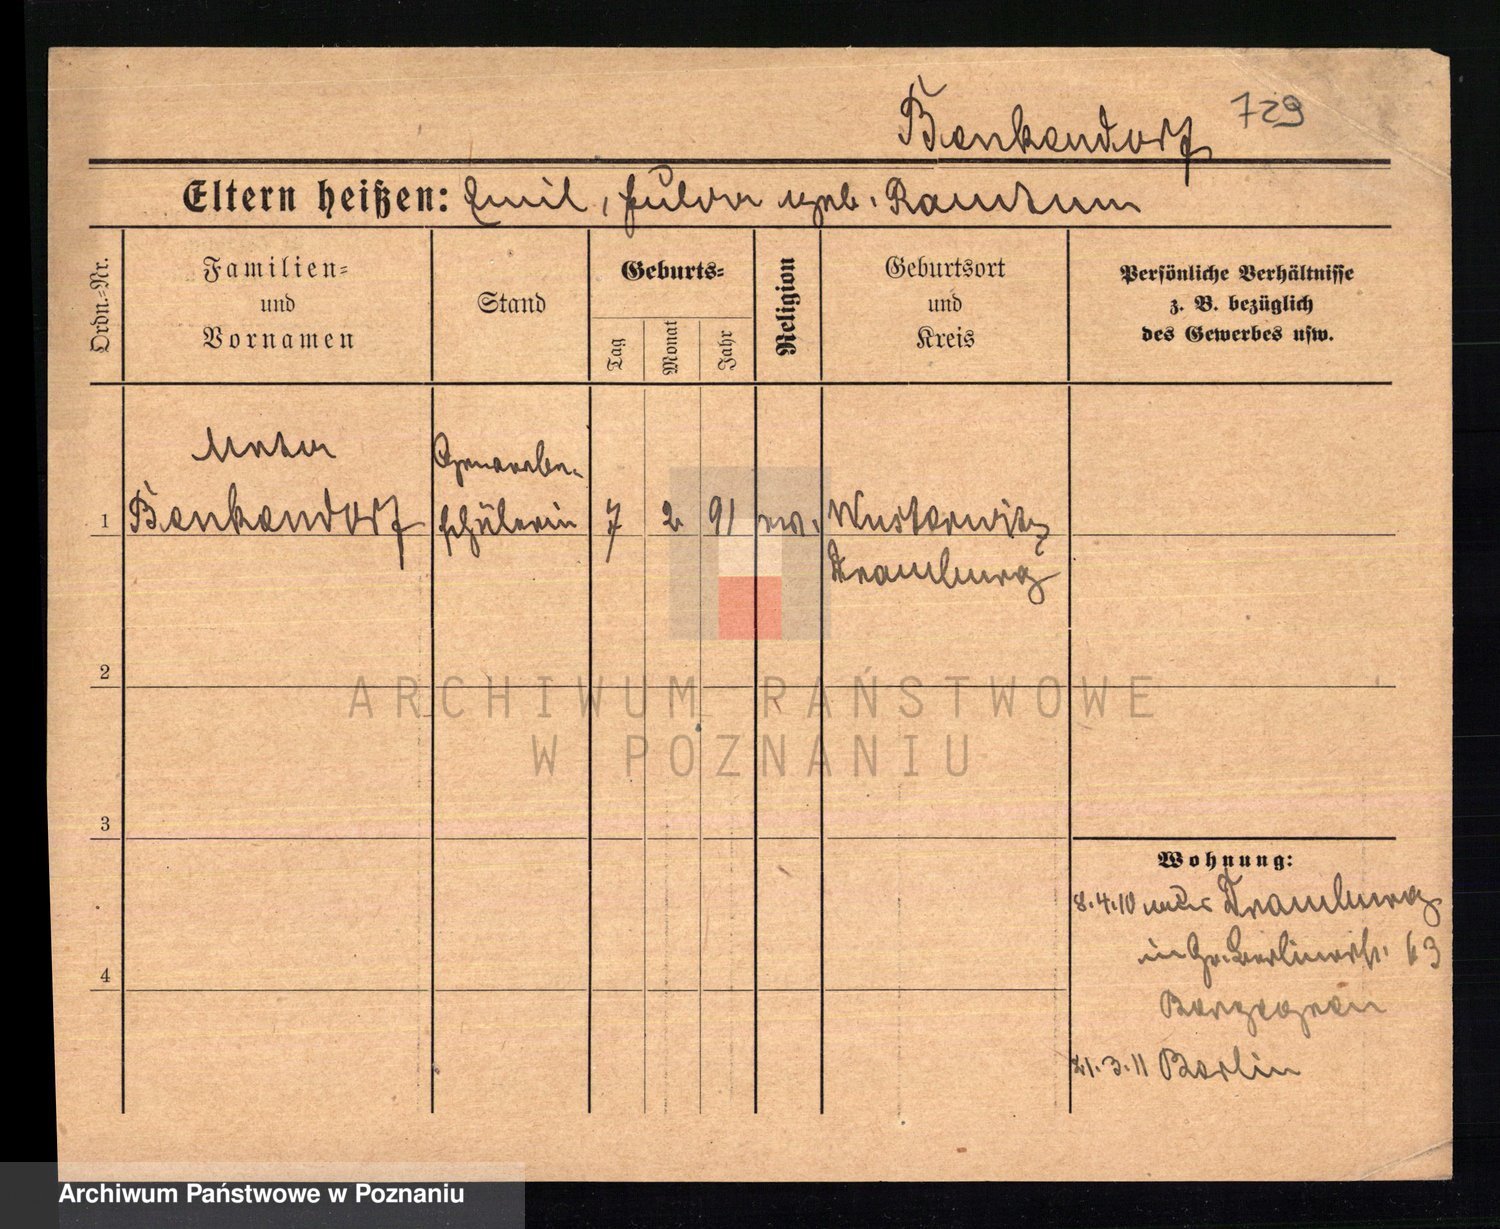 Benkendorf 729
Eltern heißen: Emil, Hulda geb. Ramthun
Ordn.-Nr.
Familien-
und
Vornamen
Stand
Geburts-
Tag
Monat
Jahr
Religion
Geburtsort
und
Kreis
Persönliche Verhältnisse
z. B. bezüglich
des Gewerbes usw.
Gewerbe-
1 Benkendorf schülerin 7 2 91 ev. Wusterwitz
Dramburg
2
ARCHIWUM PAŃSTWOWE
W POZNANIU
3
Wohnung:
8.4.10 aus Dramburg
in Gr. Berlinerstr. 63
4
21.3.11 Berlin
Archiwum Państwowe w Poznaniu